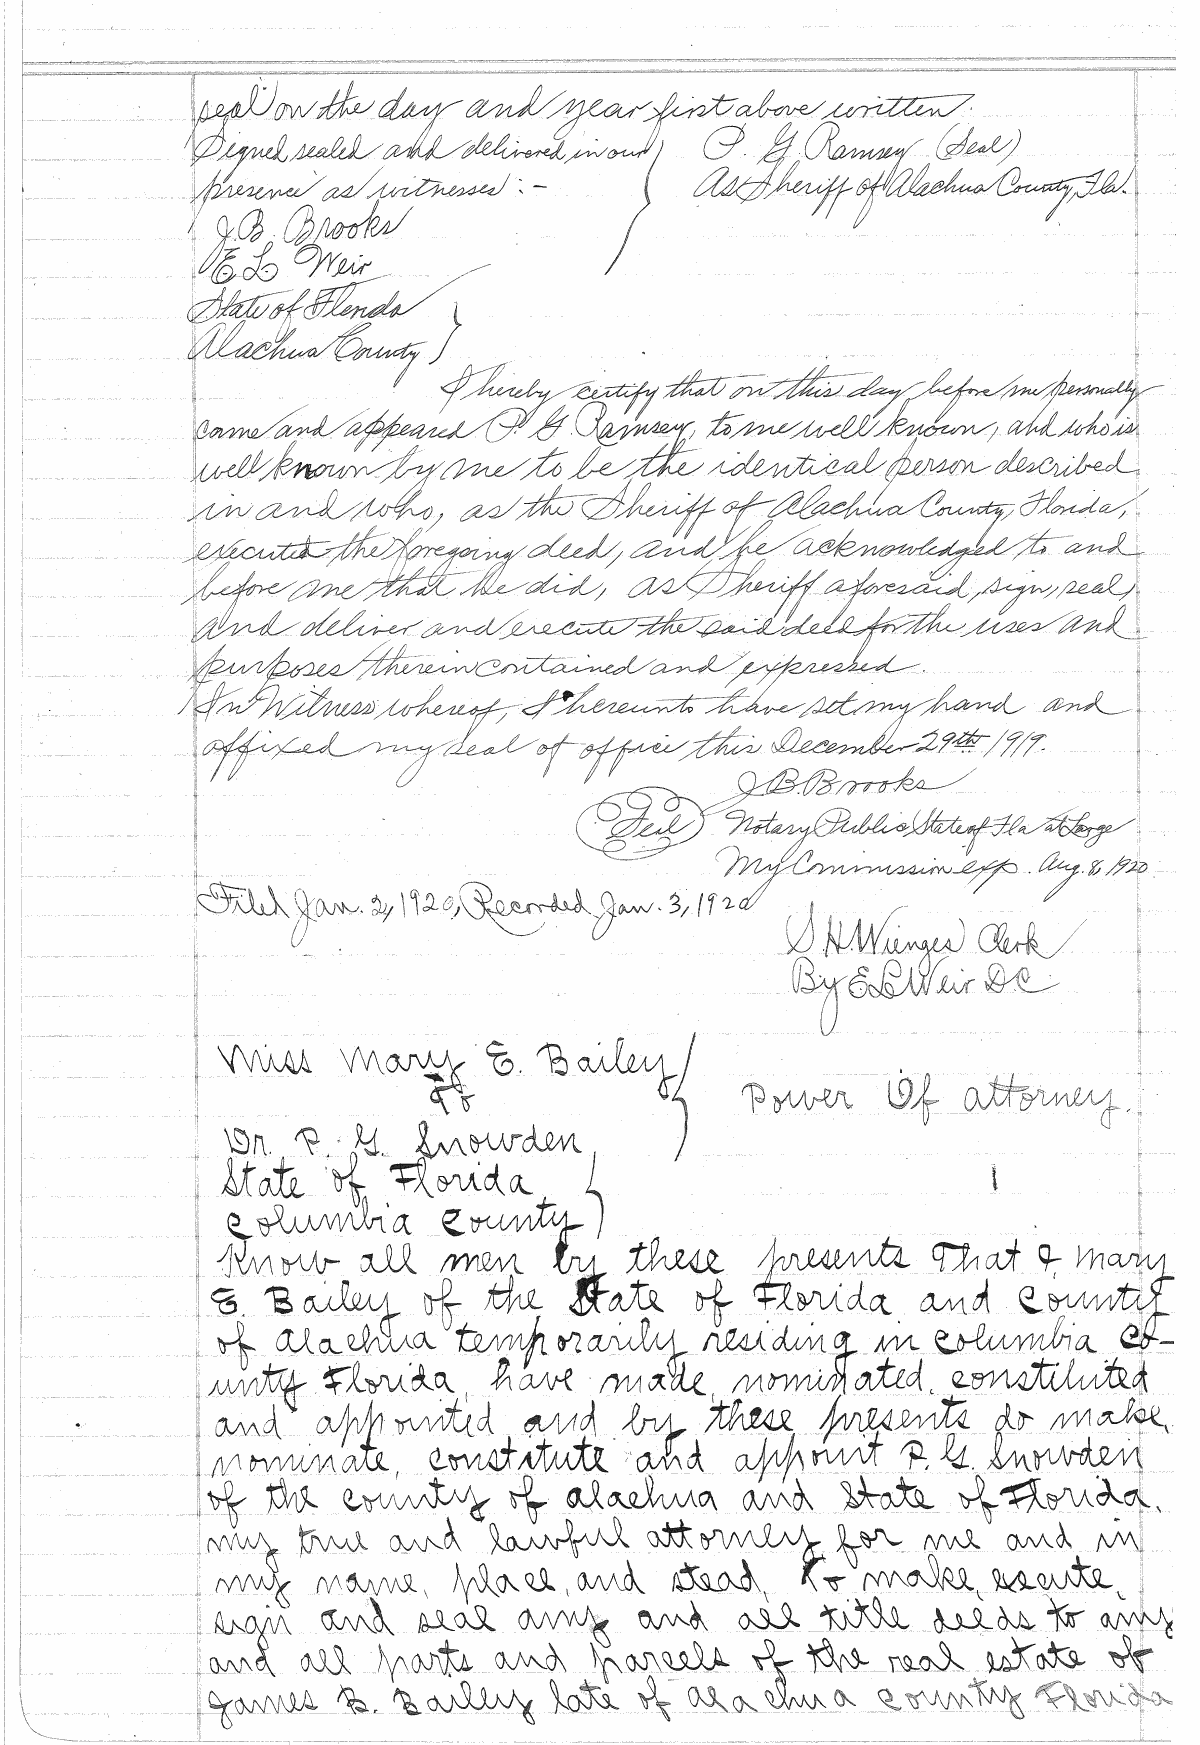 seal on the day and year first above written.
Signed, sealed and delivered in our
presence as witnesses:-
P. G. Ramsey (Seal)
As Sheriff of Alachua County, Fla.
J. B. Brooks
E L Weir
State of Florida
Alachua County
I hereby certify that on this day before me personally
came and appeared P. G. Ramsey, to me well known, and who is
well known by me to be the identical person described
in and who, as the Sheriff of Alachua County, Florida,
executed the foregoing deed, and he acknowledged to and
before me that he did, as Sheriff aforesaid, sign, seal,
and deliver and execute the said deed for the uses and
purposes therein contained and expressed.
In Witness whereof, I hereunto have set my hand and
affixed my seal of office this December 29th 1919.
J. B. Brooks
Seal Notary Public, State of Fla at Large
My Commission exp. Aug. 8, 1920
Filed Jan. 2, 1920, Recorded Jan. 3, 1920
S. H. Wienges Clerk
By E L Weir D C
Miss Mary E. Bailey
To
Power Of attorney.
Dr. P. G. Snowden
State of Florida
Columbia County
Know all men by these presents That I, Mary
E. Bailey of the State of Florida and County
of Alachua temporarily residing in Columbia Co-
unty Florida, have made, nominated, constituted
and appointed and by these presents do make,
nominate, constitute and appoint P. G. Snowden
of the county of Alachua and State of Florida,
my true and lawful attorney for me and in
my name, place, and stead, To make, execute,
sign and seal any and all title deeds to any
and all parts and parcels of the real estate of
James B. Bailey late of Alachua County Florida